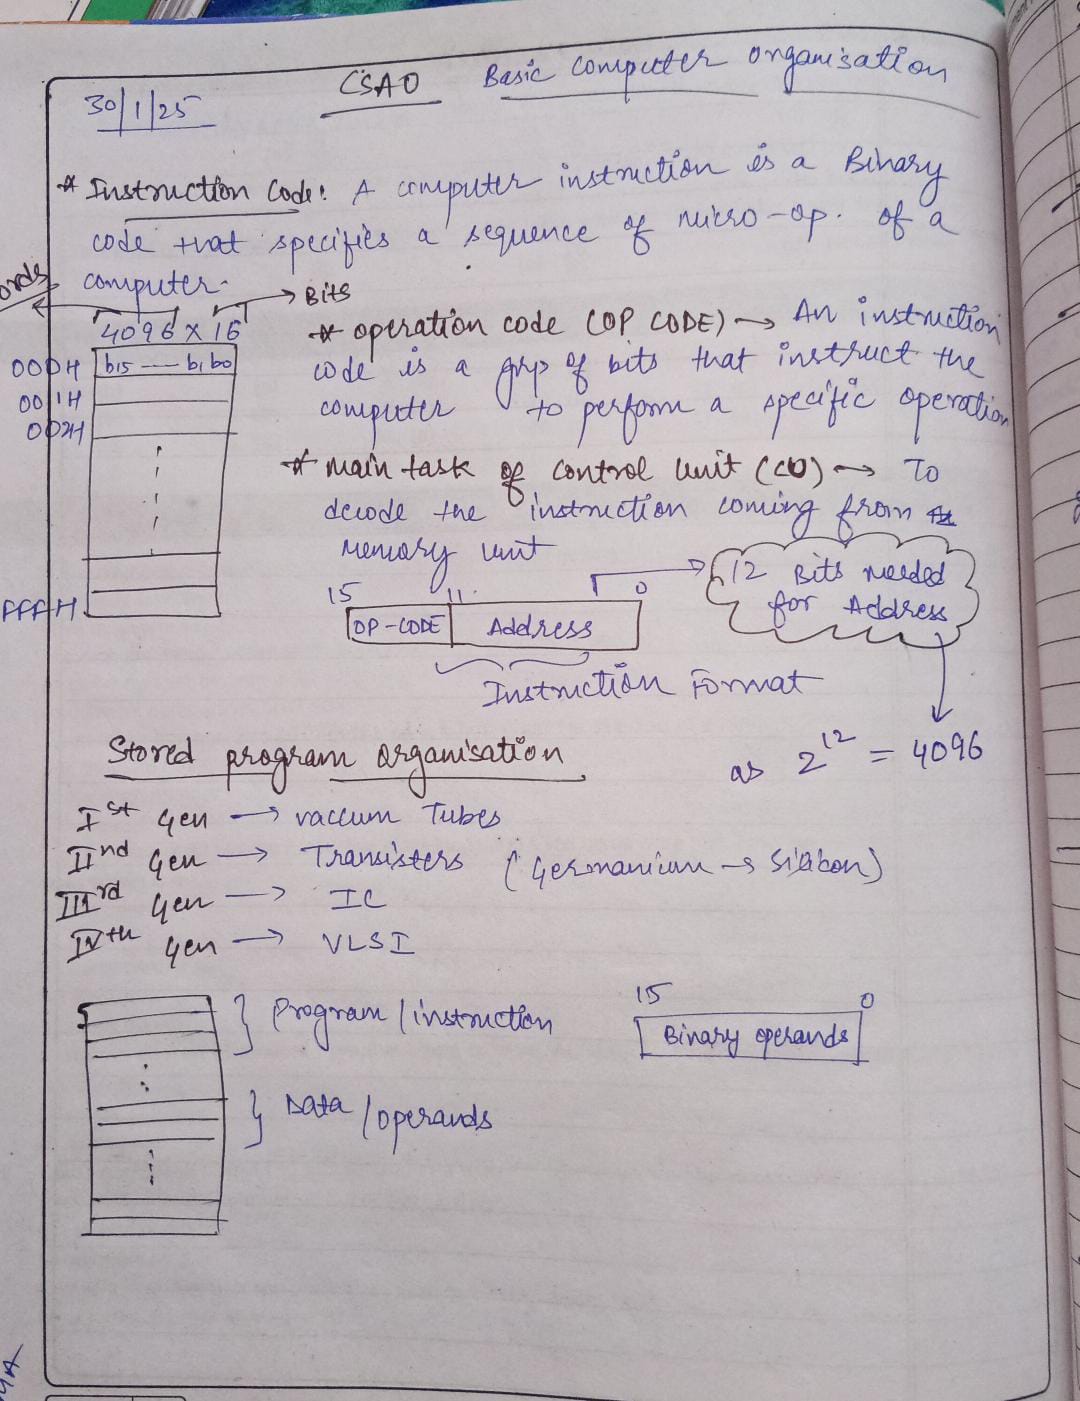 CSAO Basic Computer Organisation
30/1/25
* Instruction Code: A computer instruction is a Binary
code that specifies a sequence of micro-op. of a
computer.
→ Bits
4096 x 16
000H b15 — b1 b0
001H
002H
FFFH
* operation code (OP CODE) → An instruction
code is a grp of bits that instruct the
computer to perform a specific operation
* main task of control unit (CU) → To
decode the instruction coming from
memory unit
15 11 0
OP-CODE Address
Instruction Format
12 Bits needed
for Address
as 2^12 = 4096
Stored program organisation
Ist Gen → vaccum Tubes
IInd Gen → Transisters (Germanium → Silicon)
IIIrd Gen → IC
IVth Gen → VLSI
Program/instruction
Data/operands
15 0
Binary operands